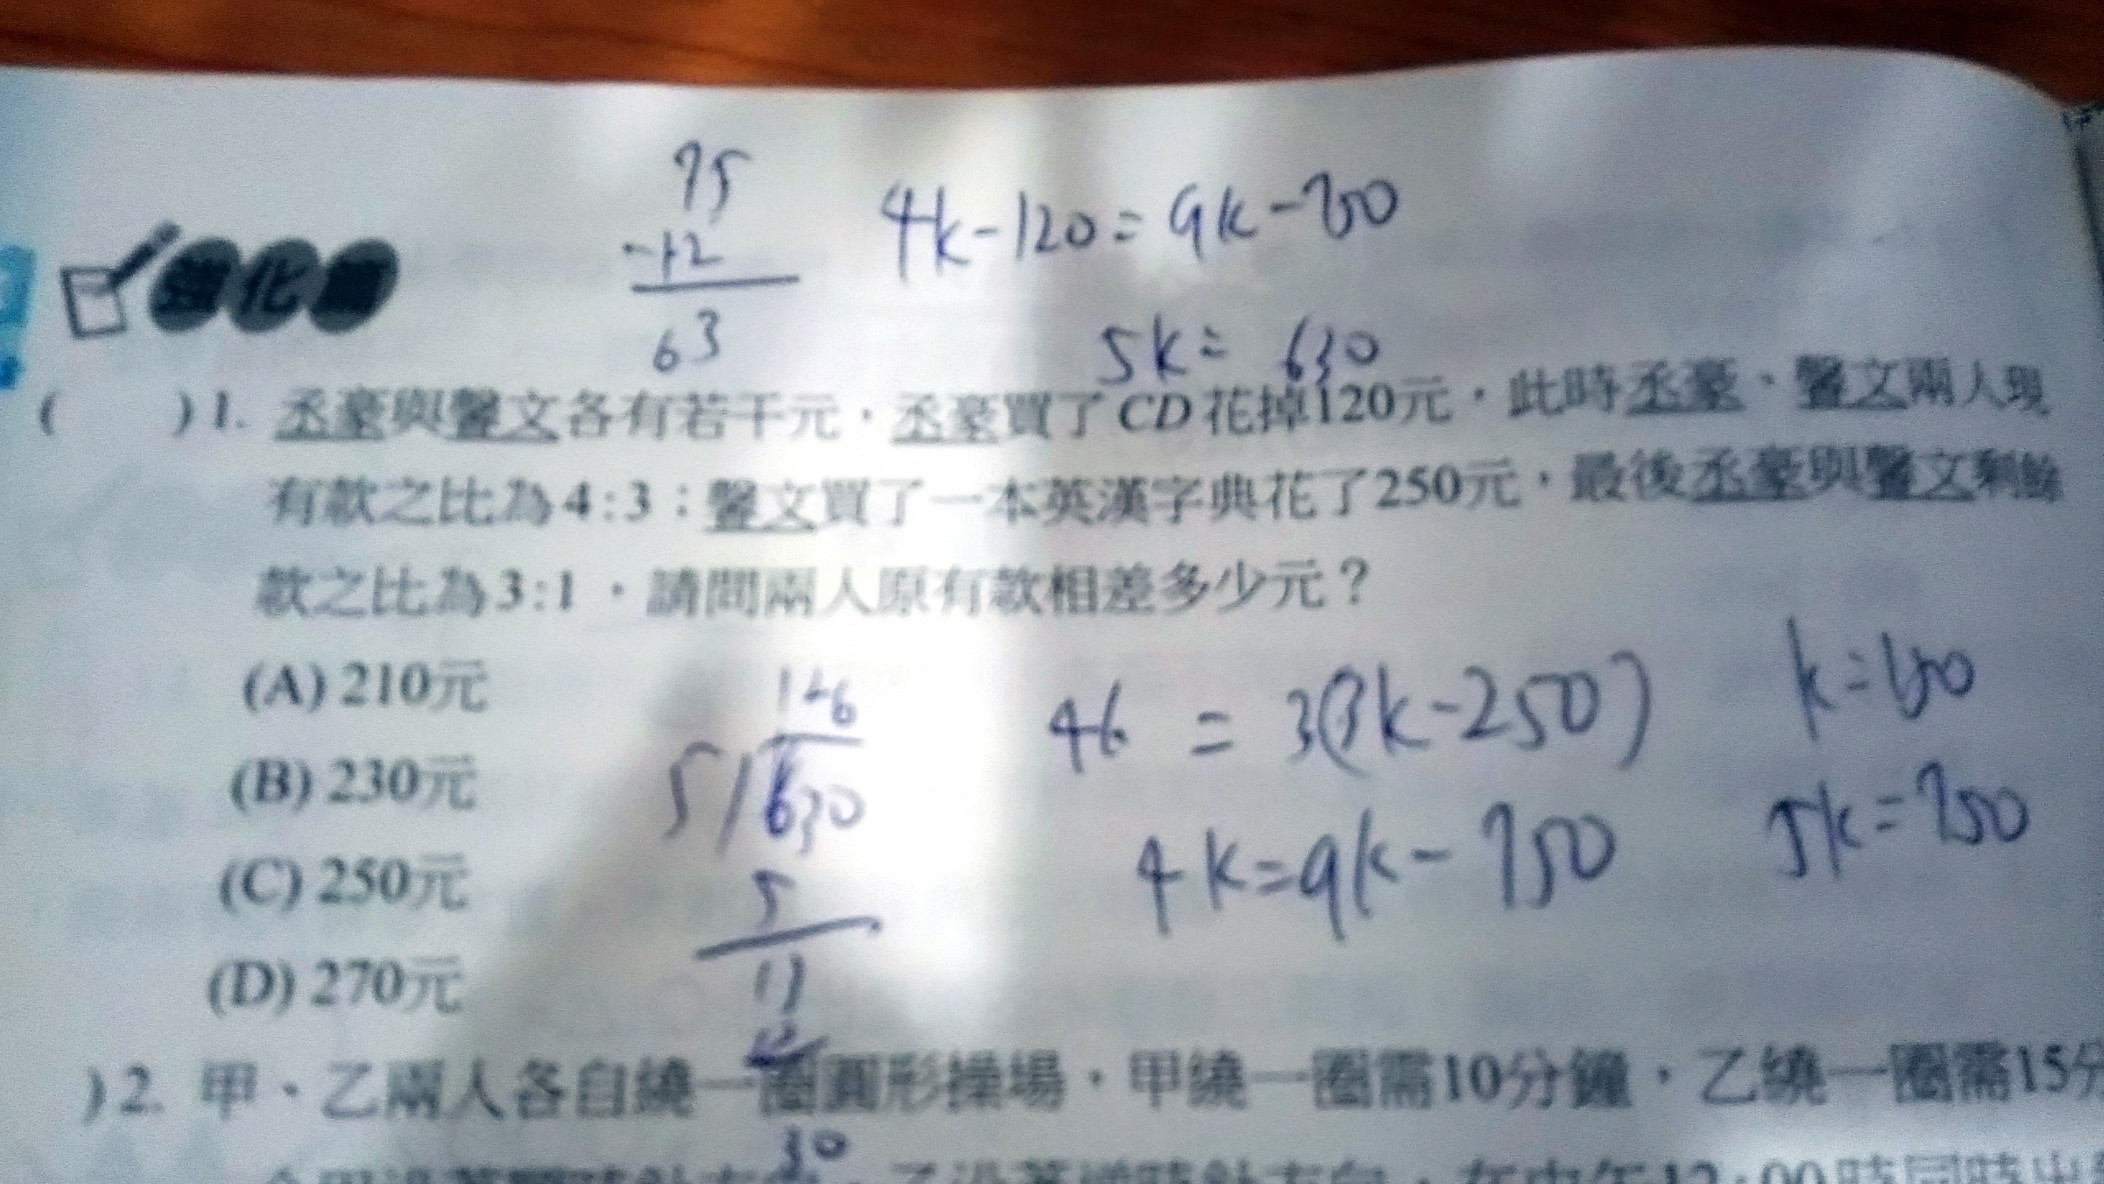 75
-12
63
4k-120=9k-750
5k=630
強化篇
( )1. 丞豪與馨文各有若干元，丞豪買了CD花掉120元，此時丞豪、馨文兩人現
有款之比為4:3；馨文買了一本英漢字典花了250元，最後丞豪與馨文剩餘
款之比為3:1，請問兩人原有款相差多少元？
(A) 210元
(B) 230元
(C) 250元
(D) 270元
126
5/630
5
13
4k = 3(3k-250)
4k=9k-750
k=150
5k=750
)2. 甲、乙兩人各自繞一圈圓形操場，甲繞一圈需10分鐘，乙繞一圈需15分
30